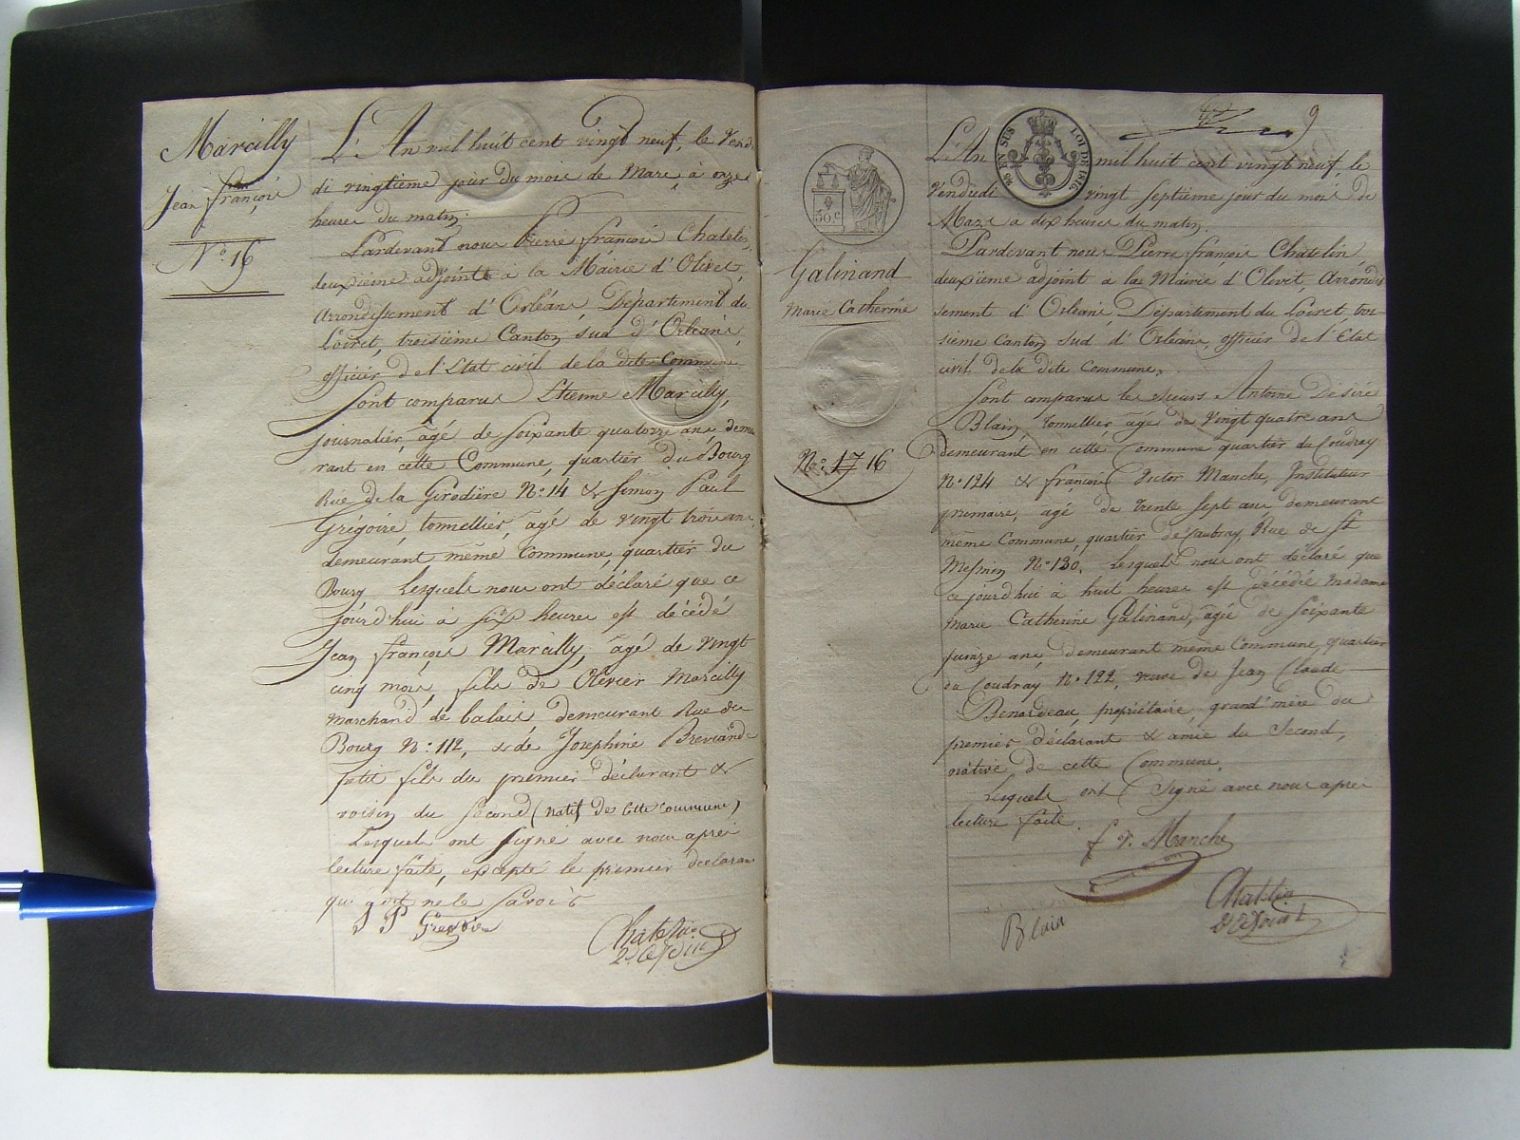 Marcilly
Jean françois
N.º 16
L'An mil huit cent vingt neuf, le Vendre
di vingtieme jour du mois de Mars, à onze
heures du matin.
Pardevant nous Pierre françois Chatelin,
deuxieme adjoint à la Mairie d'Olivet,
Arrondissement d'Orléans, Département du
Loiret, troisième Canton sud d'Orleans,
officier de l'Etat civil de la dite Commune
Sont comparus Etienne Marcilly,
journalier, âgé de soixante quatorze ans, demeu
rant en cette Commune, quartier du Bourg
Rue de la Girodière N.º 14 & Simon Paul
Grégoire, tonnellier, âgé de vingt trois ans,
demeurant même Commune, quartier du
Bourg Lesquels nous ont déclaré que ce
jourd'hui à six heures est décédé
Jean françois Marcilly, âgé de vingt
cinq mois, fils de Olivier Marcilly
marchand de balais, demeurant Rue du
Bourg N.º 112, & de Josephine
petit fils du premier déclarant &
voisin du second (natif de cette commune)
Lesquels ont signé avec nous après
lecture faite, excepté le premier declarant
qui a dit ne le savoir
S P Gregoire
Chatelin
2.e adjoint
9
30.c
LOI DE 1816
Galinand
Marie Catherine
N.º 17 16
L'An mil huit cent vingt neuf, le
Vendredi vingt septieme jour du mois de
Mars a dix heures du matin.
Pardevant nous Pierre françois Chatelin,
deuxième adjoint a la Mairie d'Olivet, Arrondis
sement d'Orléans, Département du Loiret, troi
sieme Canton sud d'Orléans, officier de l'Etat
civil de la dite Commune,
Sont comparus les sieurs Antoine Désiré
Blain, tonnellier âgé de vingt quatre ans
demeurant en cette Commune quartier du Coudray
N.º 124 & françois Victor Manche, Instituteur
primaire, agé de trente sept ans demeurant
même Commune, quartier de Rue de St
Mesmin N.º 130. Lesquels nous ont déclaré que
cejourd'hui à huit heures est décédée Madame
Marie Catherine Galinand, âgée de soixante
quinze ans, demeurant même Commune quartier
du Coudray N.º 122, veuve de Jean Claude
Benardeau, propriétaire, grand'mère du
premier déclarant & amie du Second,
native de cette Commune.
Lesquels ont signé avec nous après
lecture faite.
f V. Manche
Blain
Chatelin
2.e adjoint